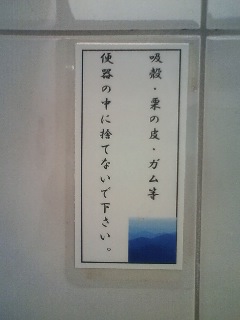 吸殻・栗の皮・ガム等
便器の中に捨てないで下さい。